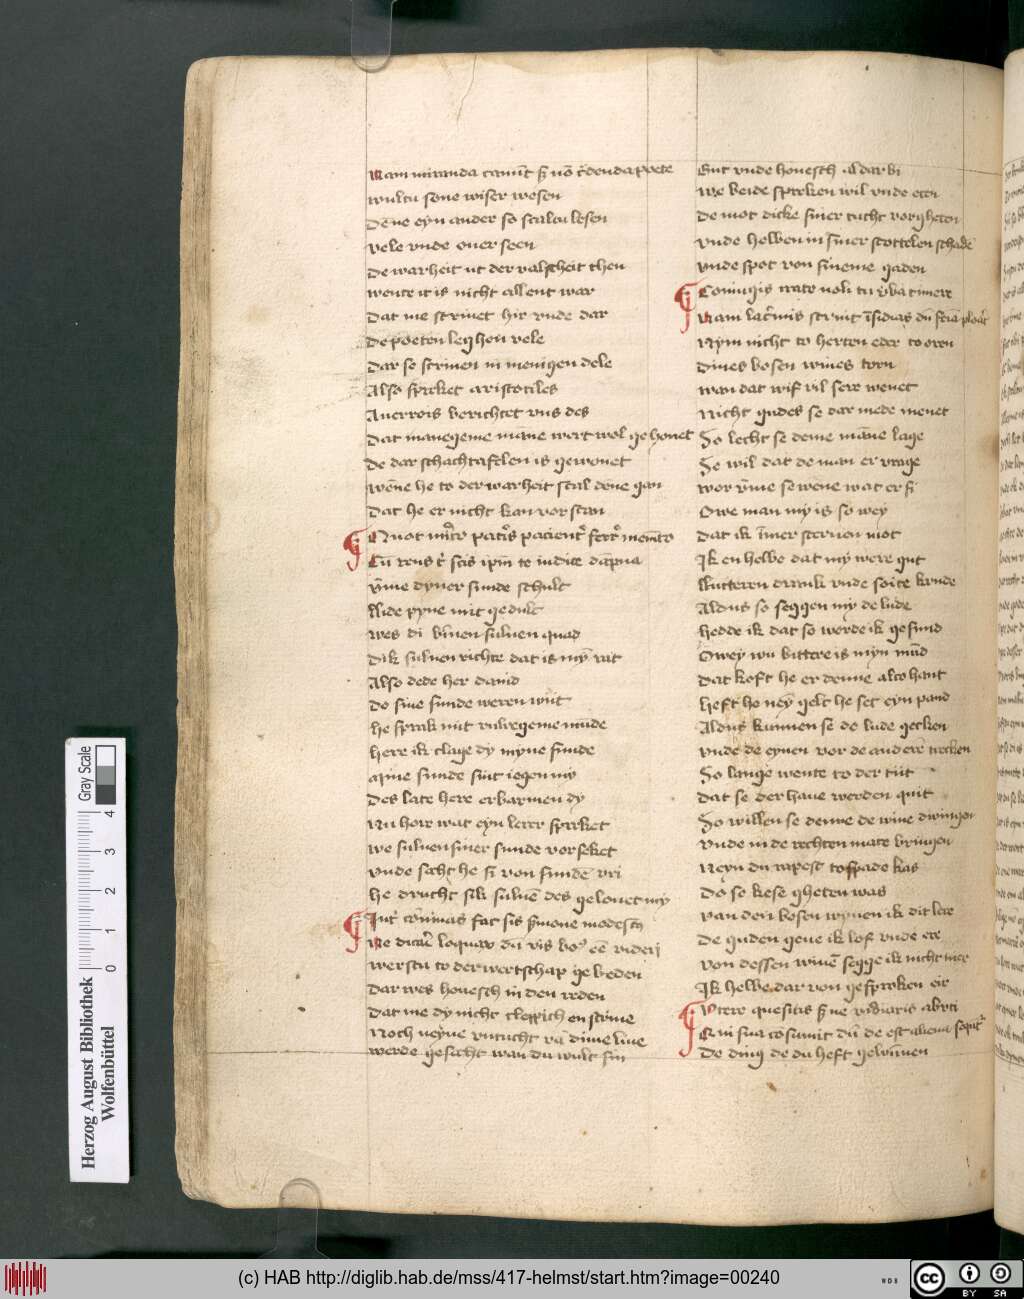 Nam miranda canūt s̄ nō c̄denda poete
wultu sone wiser wesen
Dēne eyn ander so scaltu lesen
vele vnde ouer seen
De warheit ut der valscheit then
wente it is nicht allent war
Dat me scriuet hir vnde dar
De poeten leghen vele
Dar se scriuen in menigen dele
Also spreket aristotiles
Auerrois berichtet vns des
Dat manegeme māne wert wol ge honet
De dar schachtafelen is gewonet
wēne he to der warheit scal dēne gan
Dat he er nicht kan vorstan
Quot
Cū reus
vm̄e dyner sunde schult
Lide pyne mit gedult
wes di bīnen suluen quad
Dik suluen richte dat is mȳ rat
Also dede her dauid
Do sine sunde weren wiit
he sprak mit ruwegeme mūde
here ik clage dy myne sunde
myne sunde sint iegen my
Des late here erbarmen dy
Nu hore wat eyn lerer spreket
we suluen siner sunde vorseket
vnde secht he si von sundē vri
he drucht sik suluē des gelouet my
fac sis modest
Ne loquax dū vis
werstu to der wertschap ge beden
Dar wes houesch in den reden
Dat me dy nicht en scriue
Noch neyne vntucht vā dime liue
werde gesecht wan du wult sin
Gut vnde houesch al dar bi
we beide spreken wil vnde eten
De mot dicke siner tucht vorgheten
vnde hebben in siner scottelen schade
vnde spot von sineme gaden
Coniugis irate noli tu v̄ba timere
Nam lac̄mis struit īsidias dū
Nym nicht to herten eder to oren
Dines bosen wiues torn
wan dat wif vil sere wenet
Nicht gudes se dar mede menet
So lecht se deme māne lage
Se wil dat de man er vrage
wor vm̄e se wene wat er si
Owe man my is so wey
Dat ik īmer steruen mot
Ik en hebbe dat my were gut
Lutteren drank vnde soite krude
Aldus so seggen my de lude
hedde ik dat so worde ik gesund
Owey wu bittere is myn mūd
Dat koft he er denne alto hant
heft he neȳ gelt he set eyn pand
Aldus kunnen se de lude gecken
vnde de eynen vor de andere trecken
So lange wente to der tiit
Dat se der haue werden quit
So willen se denne de wiue dwingen
vnde in de rechten mate bringen
Neyn du rapest to spade kas
Do se kese gheten was
van den bosen wyuen ik dit lere
De guden geue ik lof vnde ere
von dessen wiuē segge ik nicht mer
Ik hebbe dar von gesproken eir
Vtere quesitis s̄ ne videaris abuti
Qui sua cōsumit dū de est aliena
De ding de du heft gewūnen
Gray Scale
0 1 2 3 4
Herzog August Bibliothek
Wolfenbüttel
(c) HAB http://diglib.hab.de/mss/417-helmst/start.htm?image=00240
WDB
cc BY SA